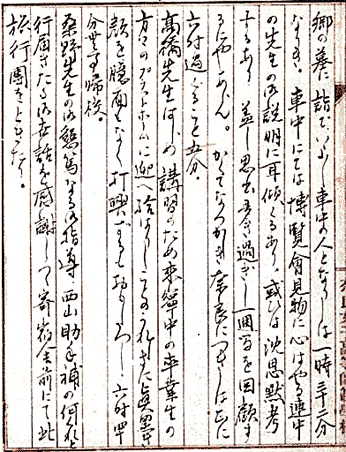 郷の墓に詣でい、よ、車中の人となりしは一時三十二分
なりき。車中にては博覧會見物に心はやる連中
の先生の御説明に耳傾くるあり。或ひは沈思黙考
するあり。蓋し思出多き過ぎし一週間を回顧す
るにやあらん。かくてなつかしき奈良につきしは正に
六時過ぐること五分。
高橋先生はじめ講習のため来寧中の卒業生の
方々のプラットホームに迎へ給はりし
顔を臆面もなく打興ずるもおもしろし。六時半
分せず帰校。
桑野先生の御懇篤なる御指導、西山助手補の何れも
行届きたる御世話を感謝しつゝ寄宿舎前にて此
旅行團をときたり。